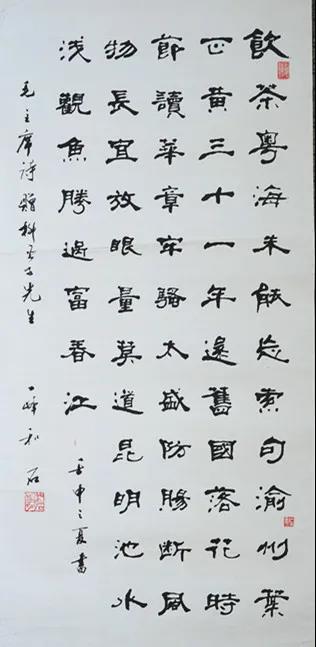 飲茶粵海未能忘索句渝州葉
正黃三十一年還舊國落花時
節讀華章牢騷太盛防腸斷風
物長宜放眼量莫道昆明池水
浅觀魚勝過富春江
壬申之夏書
毛主席詩贈柳亚子先生